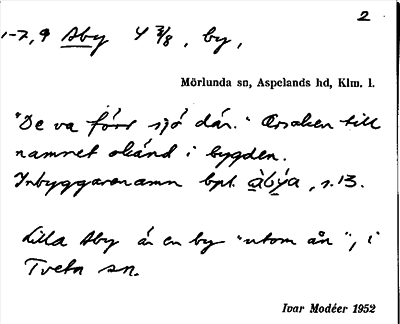 2
1-7, 9 Åby 4 3/8, by,
Mörlunda sn, Aspelands hd, Klm. l.
"De va förr sjö där." Orsaken till
namnet okänd i bygden.
Inbyggarenamn bpl. åbýa, s. 13.
Lilla Åby är en by "utom ån", i
Tveta sn.
Ivar Modéer 1952